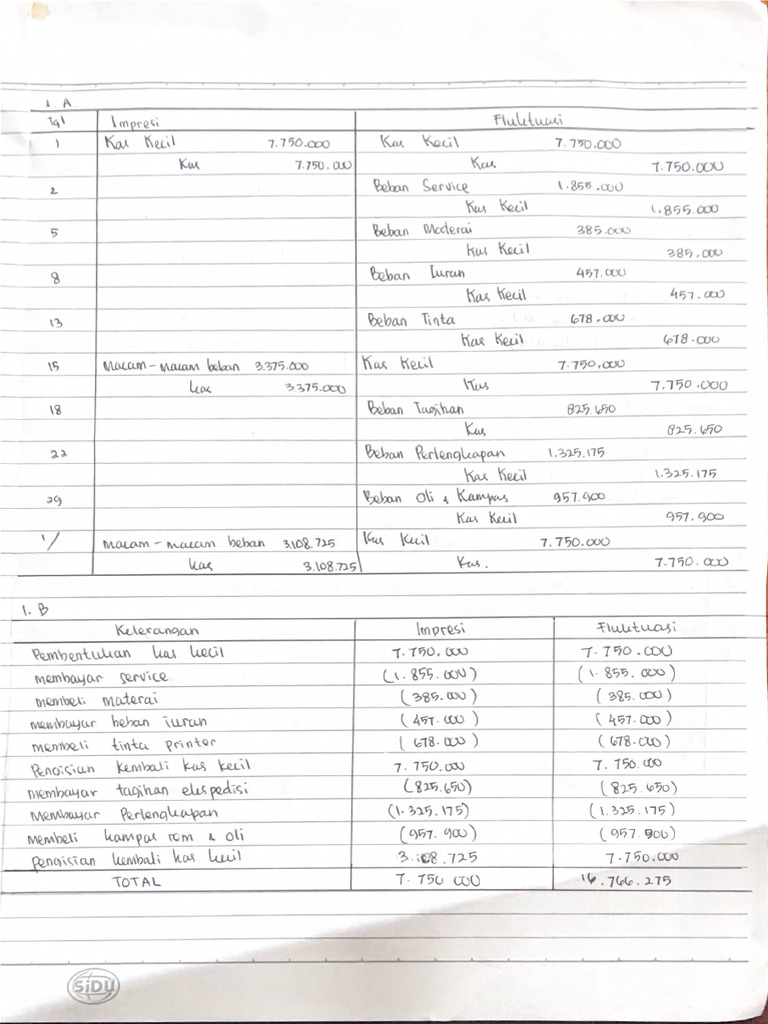 1. A
Tgl Impresi Fluktuasi
1 Kas Kecil 7.750.000 Kas Kecil 7.750.000
Kas 7.750.000 Kas 7.750.000
2 Beban Service 1.855.000
Kas Kecil 1.855.000
5 Beban Materai 385.000
Kas Kecil 385.000
8 Beban Iuran 457.000
Kas Kecil 457.000
13 Beban Tinta 678.000
Kas Kecil 678.000
15 macam-macam beban 3.375.000 Kas Kecil 7.750.000
kas 3.375.000 Kas 7.750.000
18 Beban Tagihan 825.650
Kas 825.650
22 Beban Perlengkapan 1.325.175
Kas Kecil 1.325.175
29 Beban Oli & Kampas 957.900
Kas Kecil 957.900
1/ macam-macam beban 3.108.725 Kas Kecil 7.750.000
kas 3.108.725 Kas. 7.750.000
1. B
Keterangan Impresi Fluktuasi
Pembentukan kas kecil 7.750.000 7.750.000
membayar service (1.855.000) (1.855.000)
membeli materai (385.000) (385.000)
membayar beban iuran (457.000) (457.000)
membeli tinta printer (678.000) (678.000)
Pengisian kembali kas kecil 7.750.000 7.750.000
membayar tagihan ekspedisi (825.650) (825.650)
Membayar Perlengkapan (1.325.175) (1.325.175)
Membeli kampas rem & oli (957.900) (957.900)
pengisian kembali kas kecil 3.108.725 7.750.000
TOTAL 7.750.000 16.766.275
SiDU